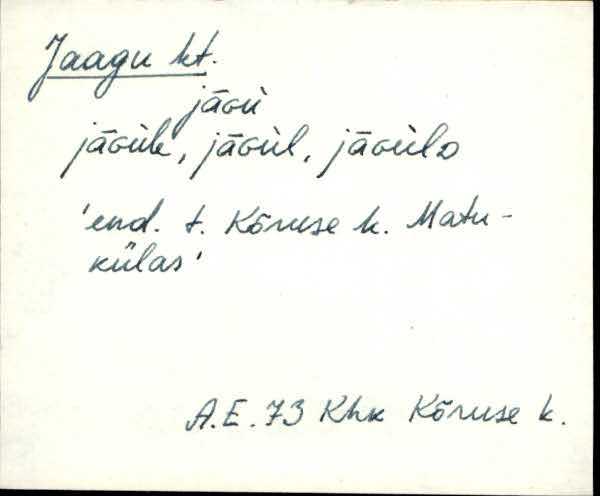 Jaagu kt.
jāǥu
jāǥule, jāǥul, jāǥulD
'end. t. Kõruse k. Matu-
külas'
A.E. 73 Khk Kõruse k.